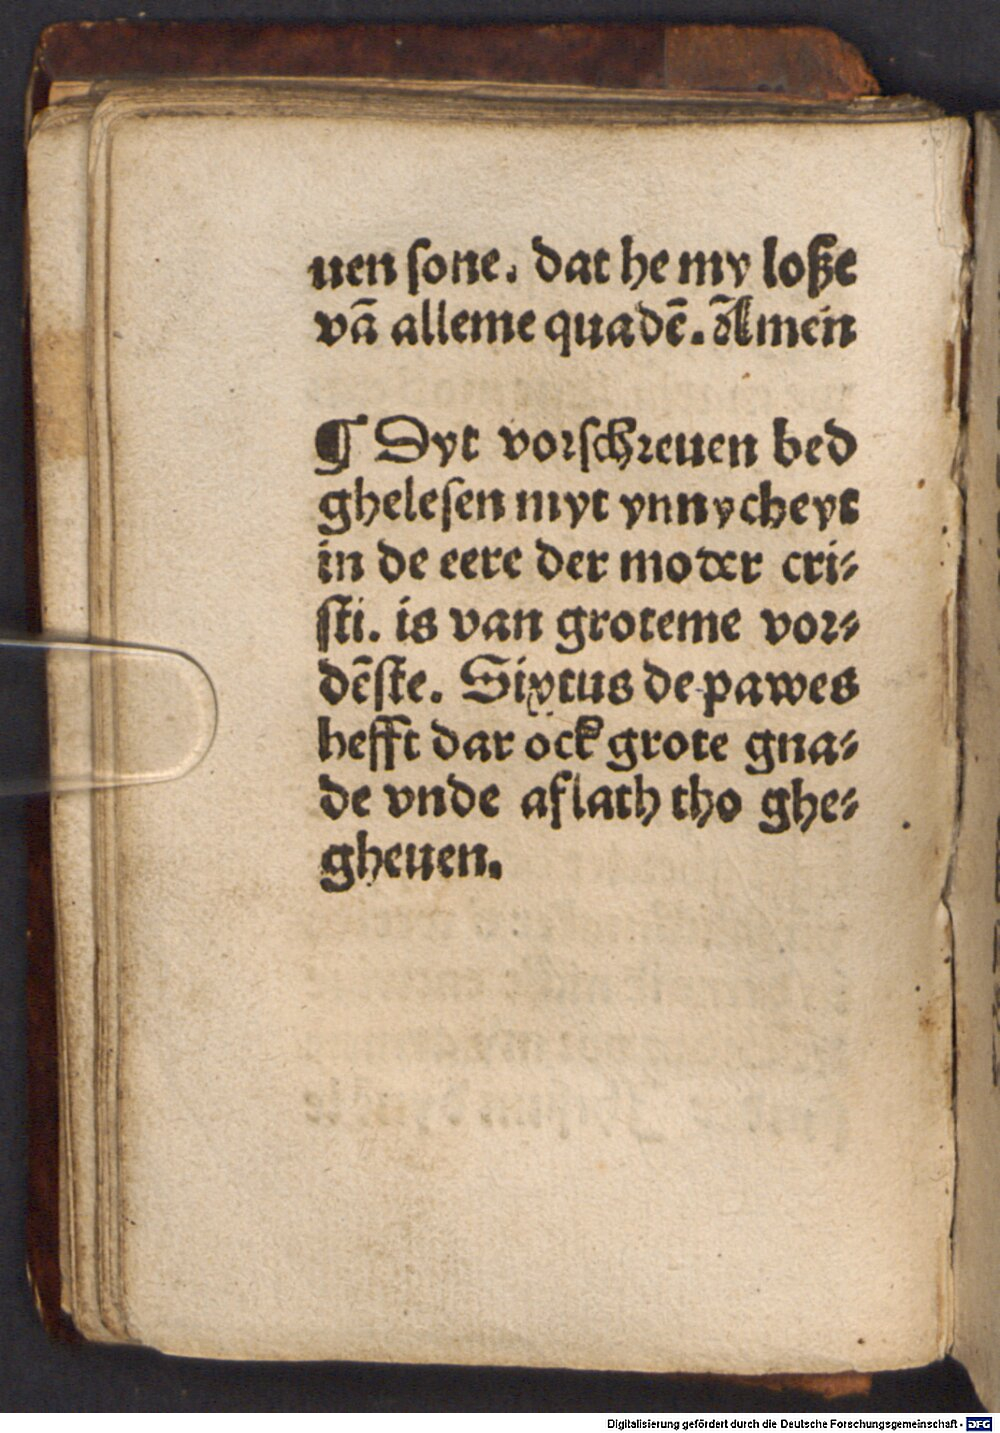 uen ſone. dat he my loſze
vā alleme quadē. Amen
¶ Dyt vorſchreuen bed
gheleſen myt ynnycheyt
in de eere der moder cri⸗
ſti. is van groteme vor⸗
dēſte. Sixtus de pawes
hefft dar ock grote gna⸗
de vnde aflath tho ghe⸗
gheuen.
Digitalisierung gefördert durch die Deutsche Forschungsgemeinschaft - DFG